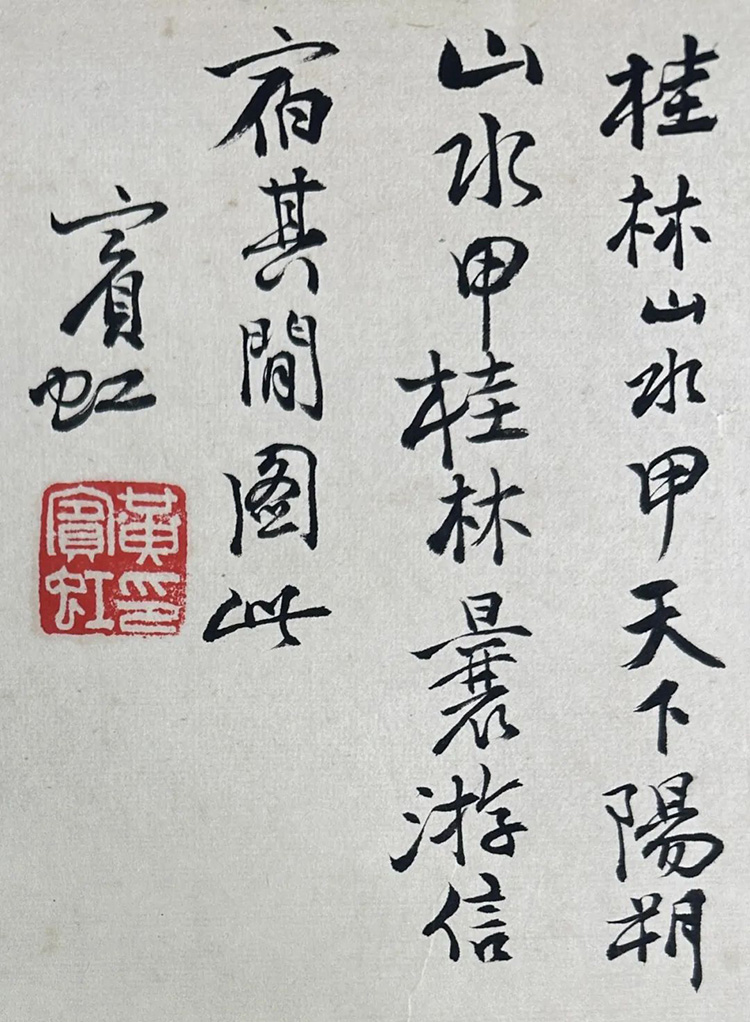 桂林山水甲天下陽朔
山水甲桂林曩游信
宿其間图此
賓虹
黃賓虹印